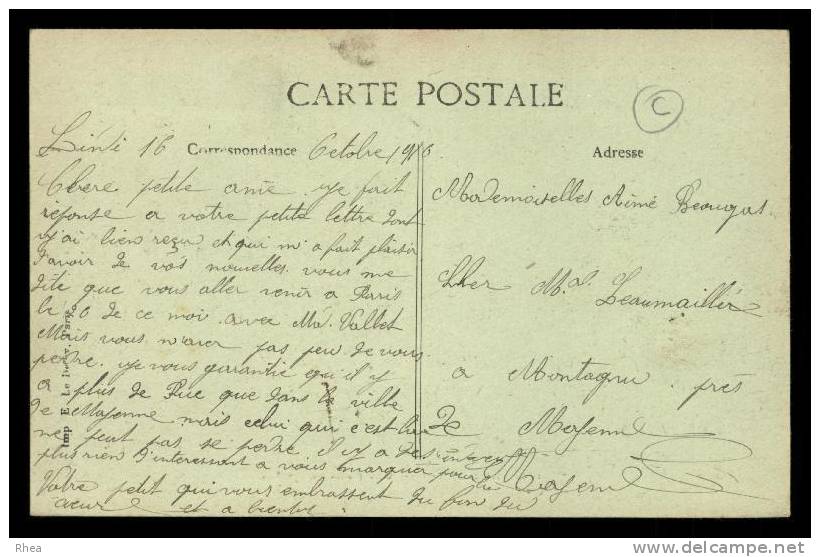 CARTE POSTALE
C
Correspondance
Adresse
Lindi 16 Octobre 1916
Chere petite amie. je fait
réponse a votre petite lettre dont
j'ai bien reçu et qui m'a fait plaisir
d'avoir de vos nouvelles. vous me
dite que vous aller venir a Paris
le 20 de ce moi. avec Mé. Vallet
Mais vous n'avez pas peu de vous
perdre. je vous garantie qui il y
a plus de Rue que dans la ville
de Mayenne mais celui qui c'est lire
ne peut pas se perdre. il y a
plus rien d'interessant a vous marquer pour
Votre petit qui vous embrassent du fon du
cœur et a bientot.
Mademoiselles Aimé
Cher Md. Beaumaillér
a Montagru. prés
de Mayenne
Mayenne
Imp E. Le
Rhea
delcampe.net